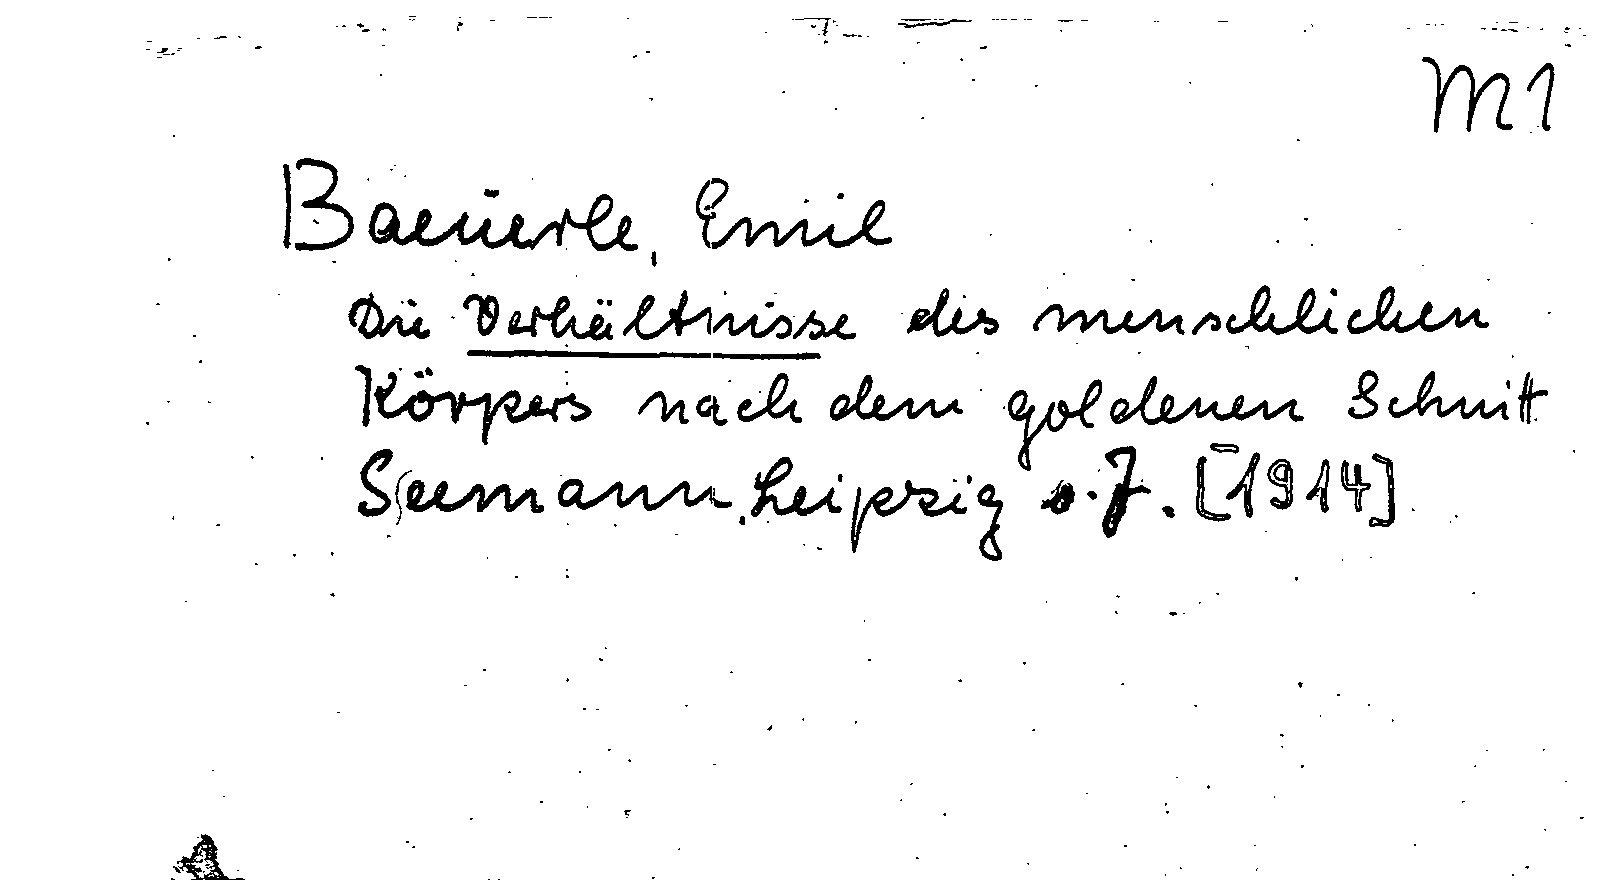 M1
Baeuerle, Emil
Die Verhältnisse des menschlichen
Körpers nach dem goldenen Schnitt
Seemann, Leipzig o.J. [1914]